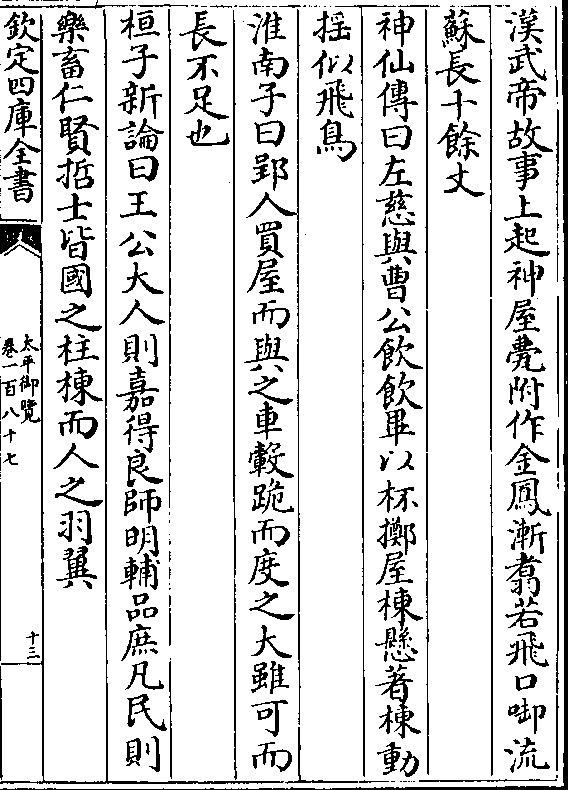 漢武帝故事上起神屋甍附作金鳳漸翥若飛口啣流
蘇長十餘丈
神仙傳曰左慈與曹公飲飲畢以杯擲屋棟懸著棟動
揺似飛鳥
淮南子曰郢人買屋而與之車轂跪而度之大雖可而
長不足也
桓子新論曰王公大人則嘉得良師明輔品庶凡民則
樂畜仁賢哲士皆國之柱棟而人之羽翼
欽定四庫全書
太平御覽
卷一百八十七
十三